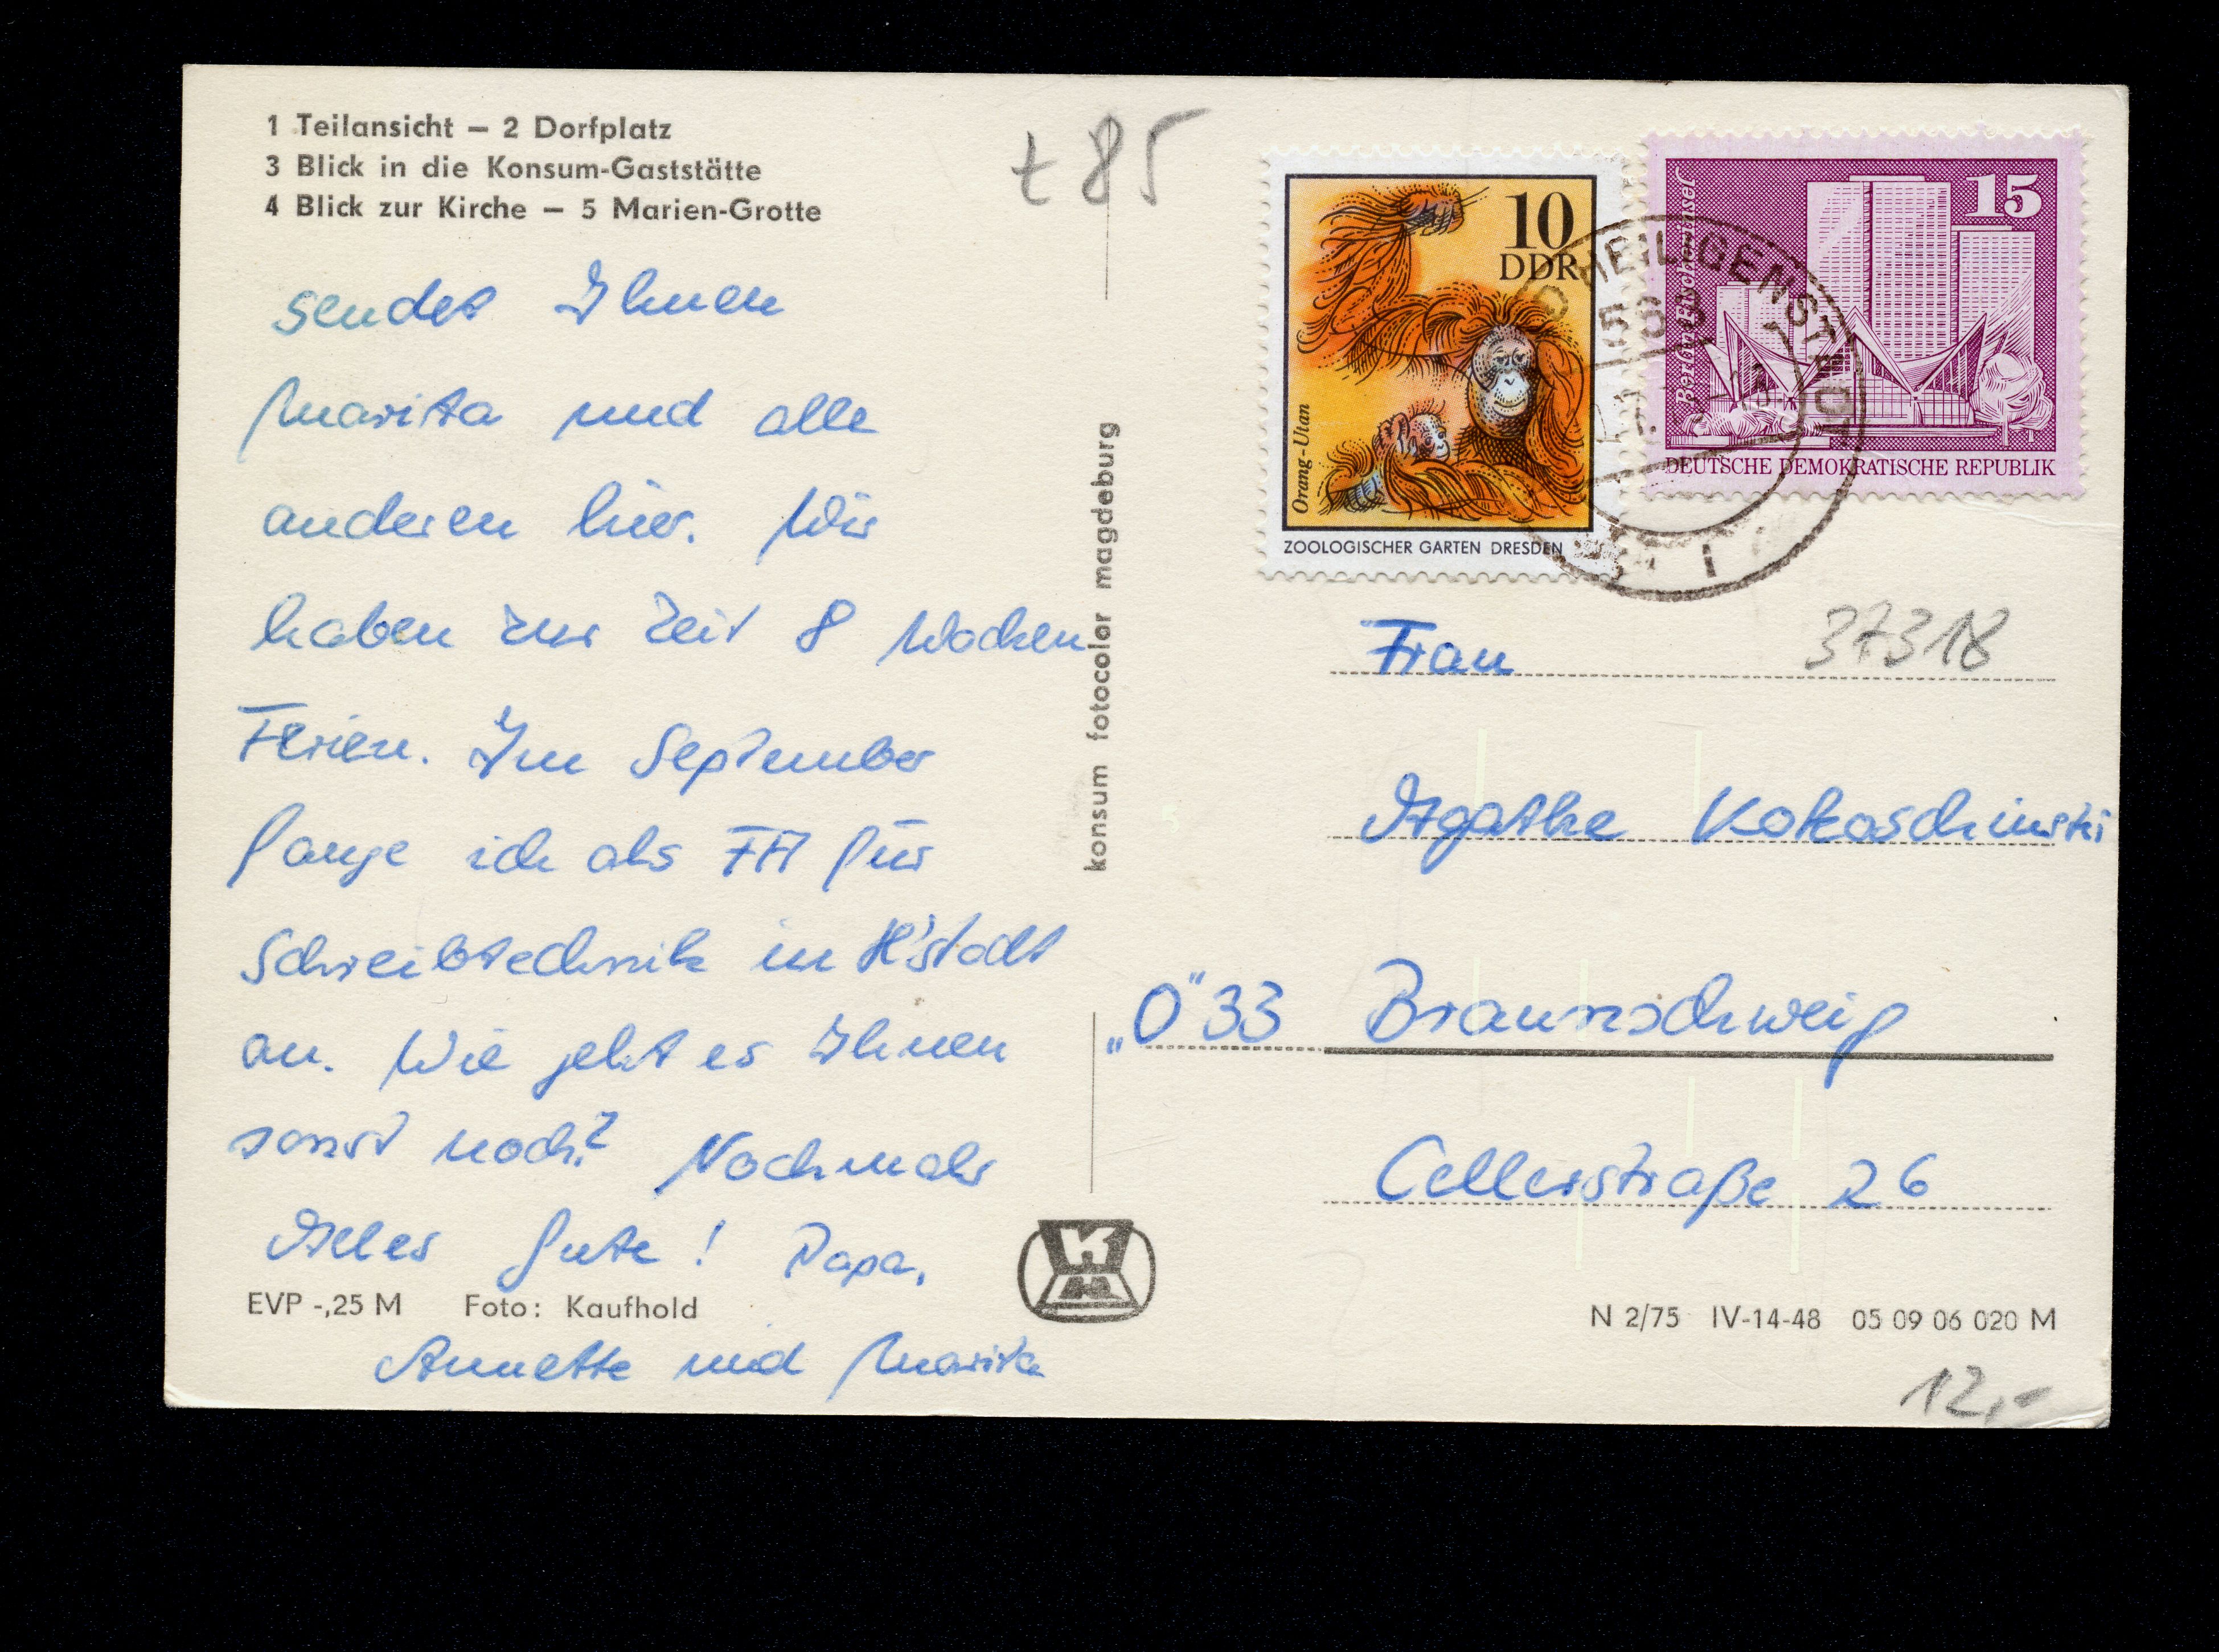 1 Teilansicht – 2 Dorfplatz
3 Blick in die Konsum-Gaststätte
4 Blick zur Kirche – 5 Marien-Grotte
t 85
sendet Ihnen
Marita und alle
anderen hier. Wir
haben zur Zeit 8 Wochen
Ferien. Im September
fange ich als FA für
Schreibtechnik in H'stadt
an. Wie geht es Ihnen
sonst noch? Nochmals
Alles Gute! Papa,
Annette und Marita
EVP -,25 M Foto: Kaufhold
konsum fotocolor magdeburg
10
DDR
Orang-Utan
ZOOLOGISCHER GARTEN DRESDEN
15
Berlin, Fischerinsel
DEUTSCHE DEMOKRATISCHE REPUBLIK
HEILIGENSTADT
Frau
37318
Agathe Kokoschinski
„O" 33 Braunschweig
Cellerstraße 26
N 2/75 IV-14-48 05 09 06 020 M
12,-